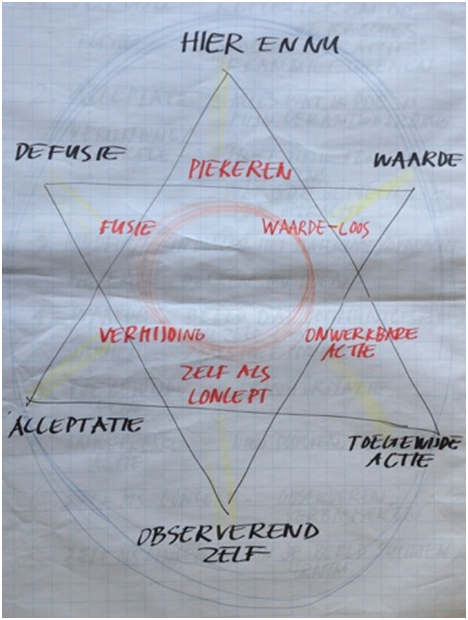 HIER EN NU
DEFUSIE
WAARDE
PIEKEREN
FUSIE
WAARDE-LOOS
VERMIJDING
ONWERKBARE
ACTIE
ZELF ALS
CONCEPT
ACCEPTATIE
TOEGEWIJDE
ACTIE
OBSERVEREND
ZELF